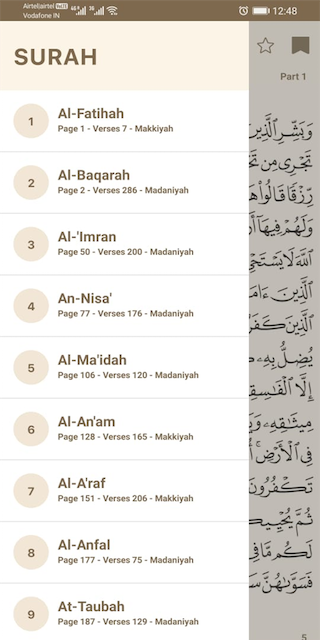 Airtellairtel VoLTE
Vodafone IN
4G 3G
12:48
SURAH
1
Al-Fatihah
Page 1 - Verses 7 - Makkiyah
2
Al-Baqarah
Page 2 - Verses 286 - Madaniyah
3
Al-'Imran
Page 50 - Verses 200 - Madaniyah
4
An-Nisa'
Page 77 - Verses 176 - Madaniyah
5
Al-Ma'idah
Page 106 - Verses 120 - Madaniyah
6
Al-An'am
Page 128 - Verses 165 - Makkiyah
7
Al-A'raf
Page 151 - Verses 206 - Makkiyah
8
Al-Anfal
Page 177 - Verses 75 - Madaniyah
9
At-Taubah
Page 187 - Verses 129 - Madaniyah
Part 1
وَبَشِّرِ ٱلَّذِينَ
تَجْرِى مِن
رِّزْقًا قَالُوا۟
وَلَهُمْ فِيهَآ
ٱللَّهَ لَا يَسْتَحْىِ
ٱلَّذِينَ ءَامَ
ٱلَّذِينَ كَفَ
يُضِلُّ بِهِۦ
إِلَّا ٱلْفَٰسِقِ
مِيثَٰقِهِۦ وَيَ
فِى ٱلْأَرْضِ ۚ أُ
تَكْفُرُونَ
ثُمَّ يُحْيِيكُ
لَكُم مَّا فِى
فَسَوَّىٰهُنَّ سَ
5